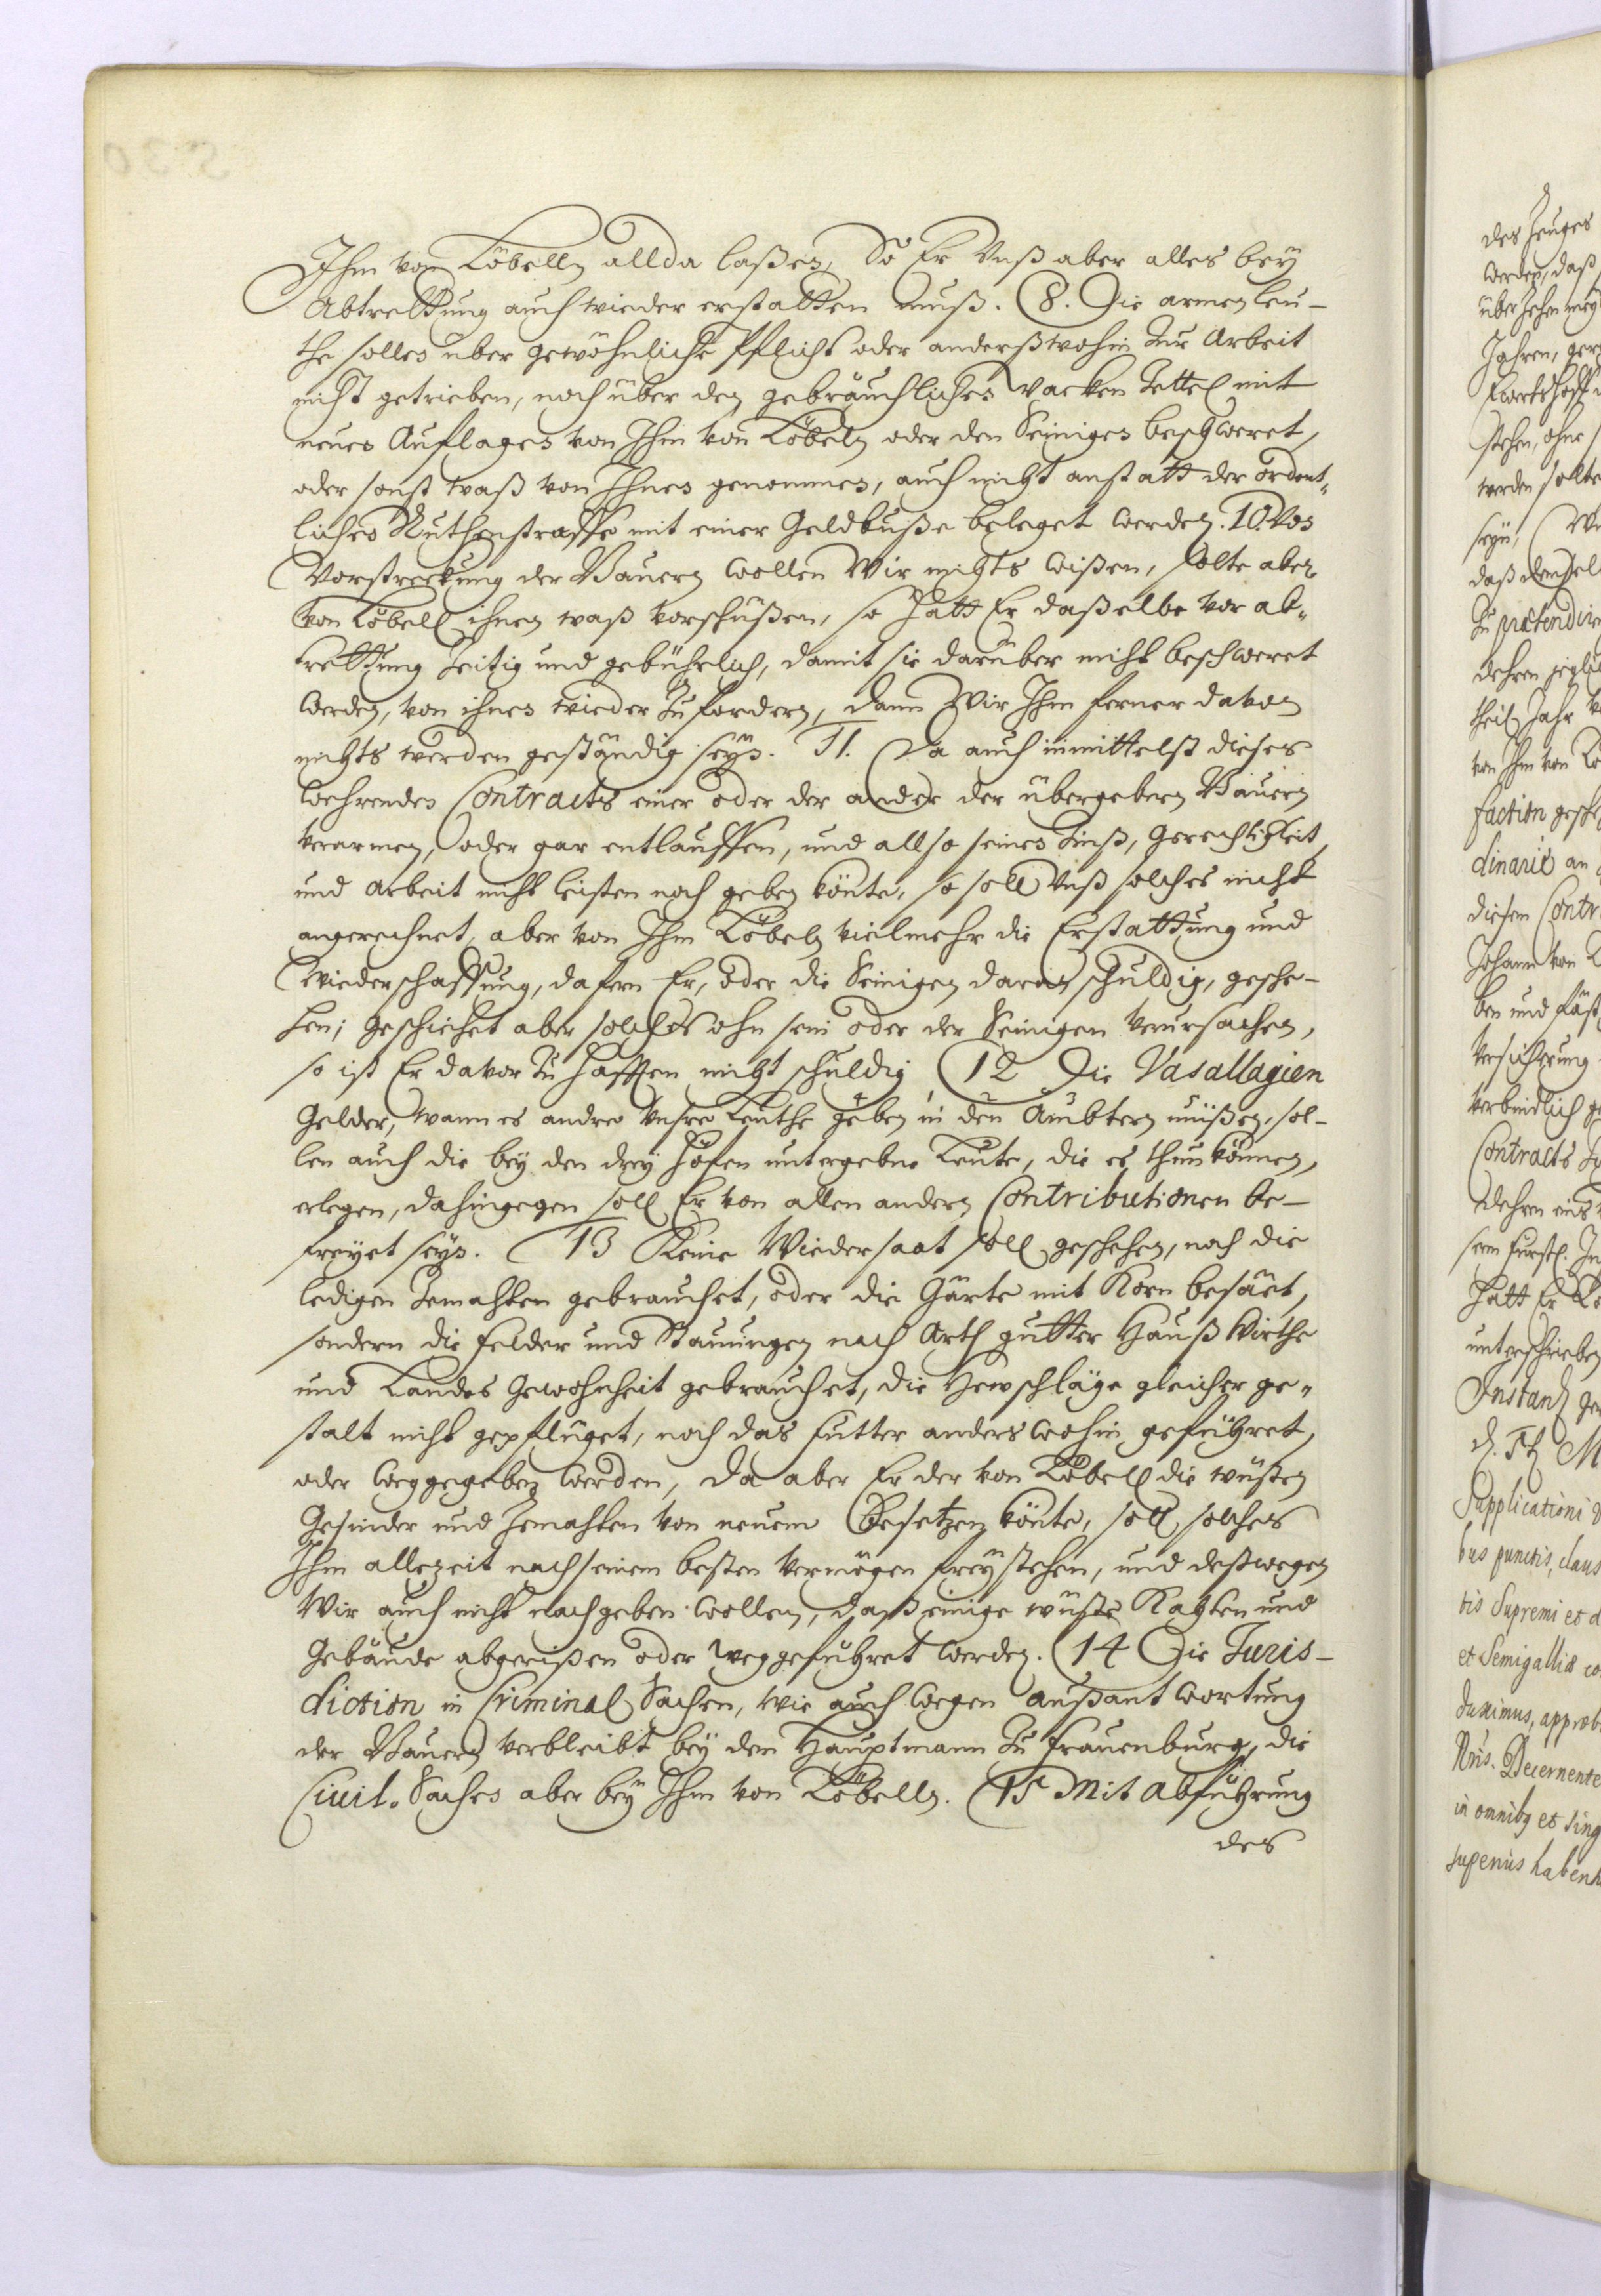 Ihm von Löbelln allda laßen, So Er Unß aber alles bey
Abtrettung auch wieder erstatten muß. 8. Die armen Leu-
the sollen über gewöhnliche Pflicht oder anderßwohin zur Arbeit
nicht getrieben, noch über den gebräuchlichen Wacken Zettel mit
neuen Auflagen von Ihm von Löbeln oder den Seinigen beschweret,
oder sonst waß von Ihnen genommen, auch nicht anstatt der ordent-
lichen Ruthenstraffe mit einer Geldbuße beleget werden. 10. Von
Vorstreckung der Bauern wollen Wir nichts wißen, solte aber
von Löbell ihnen waß vorschüßen, so hatt Er daßelbe vor ab-
trettung zeitig und gebührlich, damit sie darüber nicht beschweret
werden, von ihnen wieder zu fordern, dann Wir Ihm ferner davon
nichts werden geständig seyn. 11. Da auch inmittelst dieses
wehrenden Contracts einer oder der ander der übergebenen Bauern
verarmen, oder gar entlauffen, und allso seinen Zinß, Gerechtigkeit,
und Arbeit nicht leisten noch geben könte, so soll Unß solches nicht
angerechnet, aber von Ihm Löbeln vielmehr die Erstattung und
Wiederschaffung, dafern Er, oder die Seinigen daran schuldig, gesche-
hen; geschiehet aber solches ohn sein oder der Seinigen verursachen,
so ist Er davor zu hafften nicht schuldig 12 Die Vasallagien
Gelder, wann es andre Unsre Leuthe geben in den Ämbtern müßen, sol-
len auch die bey den drey Höfen untergebne Leute, die es thun können,
erlegen, dahingegen soll Er von allen andern Contributionen be-
freyet seyn. 13 Keine Wiedersaat soll geschehen, noch die
ledigen Heimahten gebrauchet, oder die Gärte mit Korn besäet,
sondern die Felder und Stauungen nach Arth gutter Hauß Wirthe
und Landes Gewohnheit gebrauchet, die Hewschläge gleicher ge-
stalt nicht gepflüget, noch das Futter anderswohin geführet,
oder weggegeben werden, Da aber Er der von Löbell die wüsten
Gesinder und Heimahten von neuem Besetzen könte, soll solches
Ihm allezeit nach seinem besten Vermögen freystehen, und deßwegen
Wir auch nicht nachgeben wollen, daß einige wüste Kahten und
Gebäude abgerißen oder weggeführet werden. 14 Die Juris-
diction in Criminal Sachen, wie auch wegen außantwortung
der Bauern verbleibt bey dem Hauptmann zu Frauenburg, die
Civil-Sachen aber bey Ihm von Löbelln. 15 Mit Abführung
des
des Zeuges
werden, daß
Jahren,
stehen, ohne
werden solte
seyn,
zu prætendire
theil Jahr
von Ihm von
faction
dinarie an
diesen Contr
Johann von
Versicherung
verbindlich
Contracts
sern Fürstl. In
hatt Er
unterschrieben
Instantz
Supplicationi
bus punctis, claus
tis Supremi et d
et Semigalliæ
duximus, approb
Decernente
in omnibq et sing
superius habent